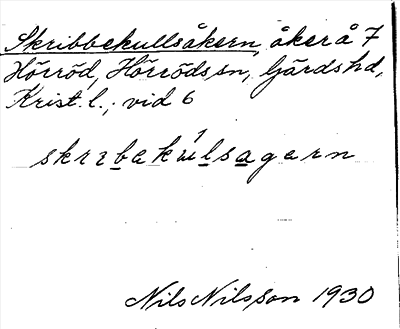 Skribbekullsåkern, åker å 7
Hörröd, Hörröds sn, Gärds hd,
Krist. l.; vid 6
skrɩbekulsagern
Nils Nilsson 1930